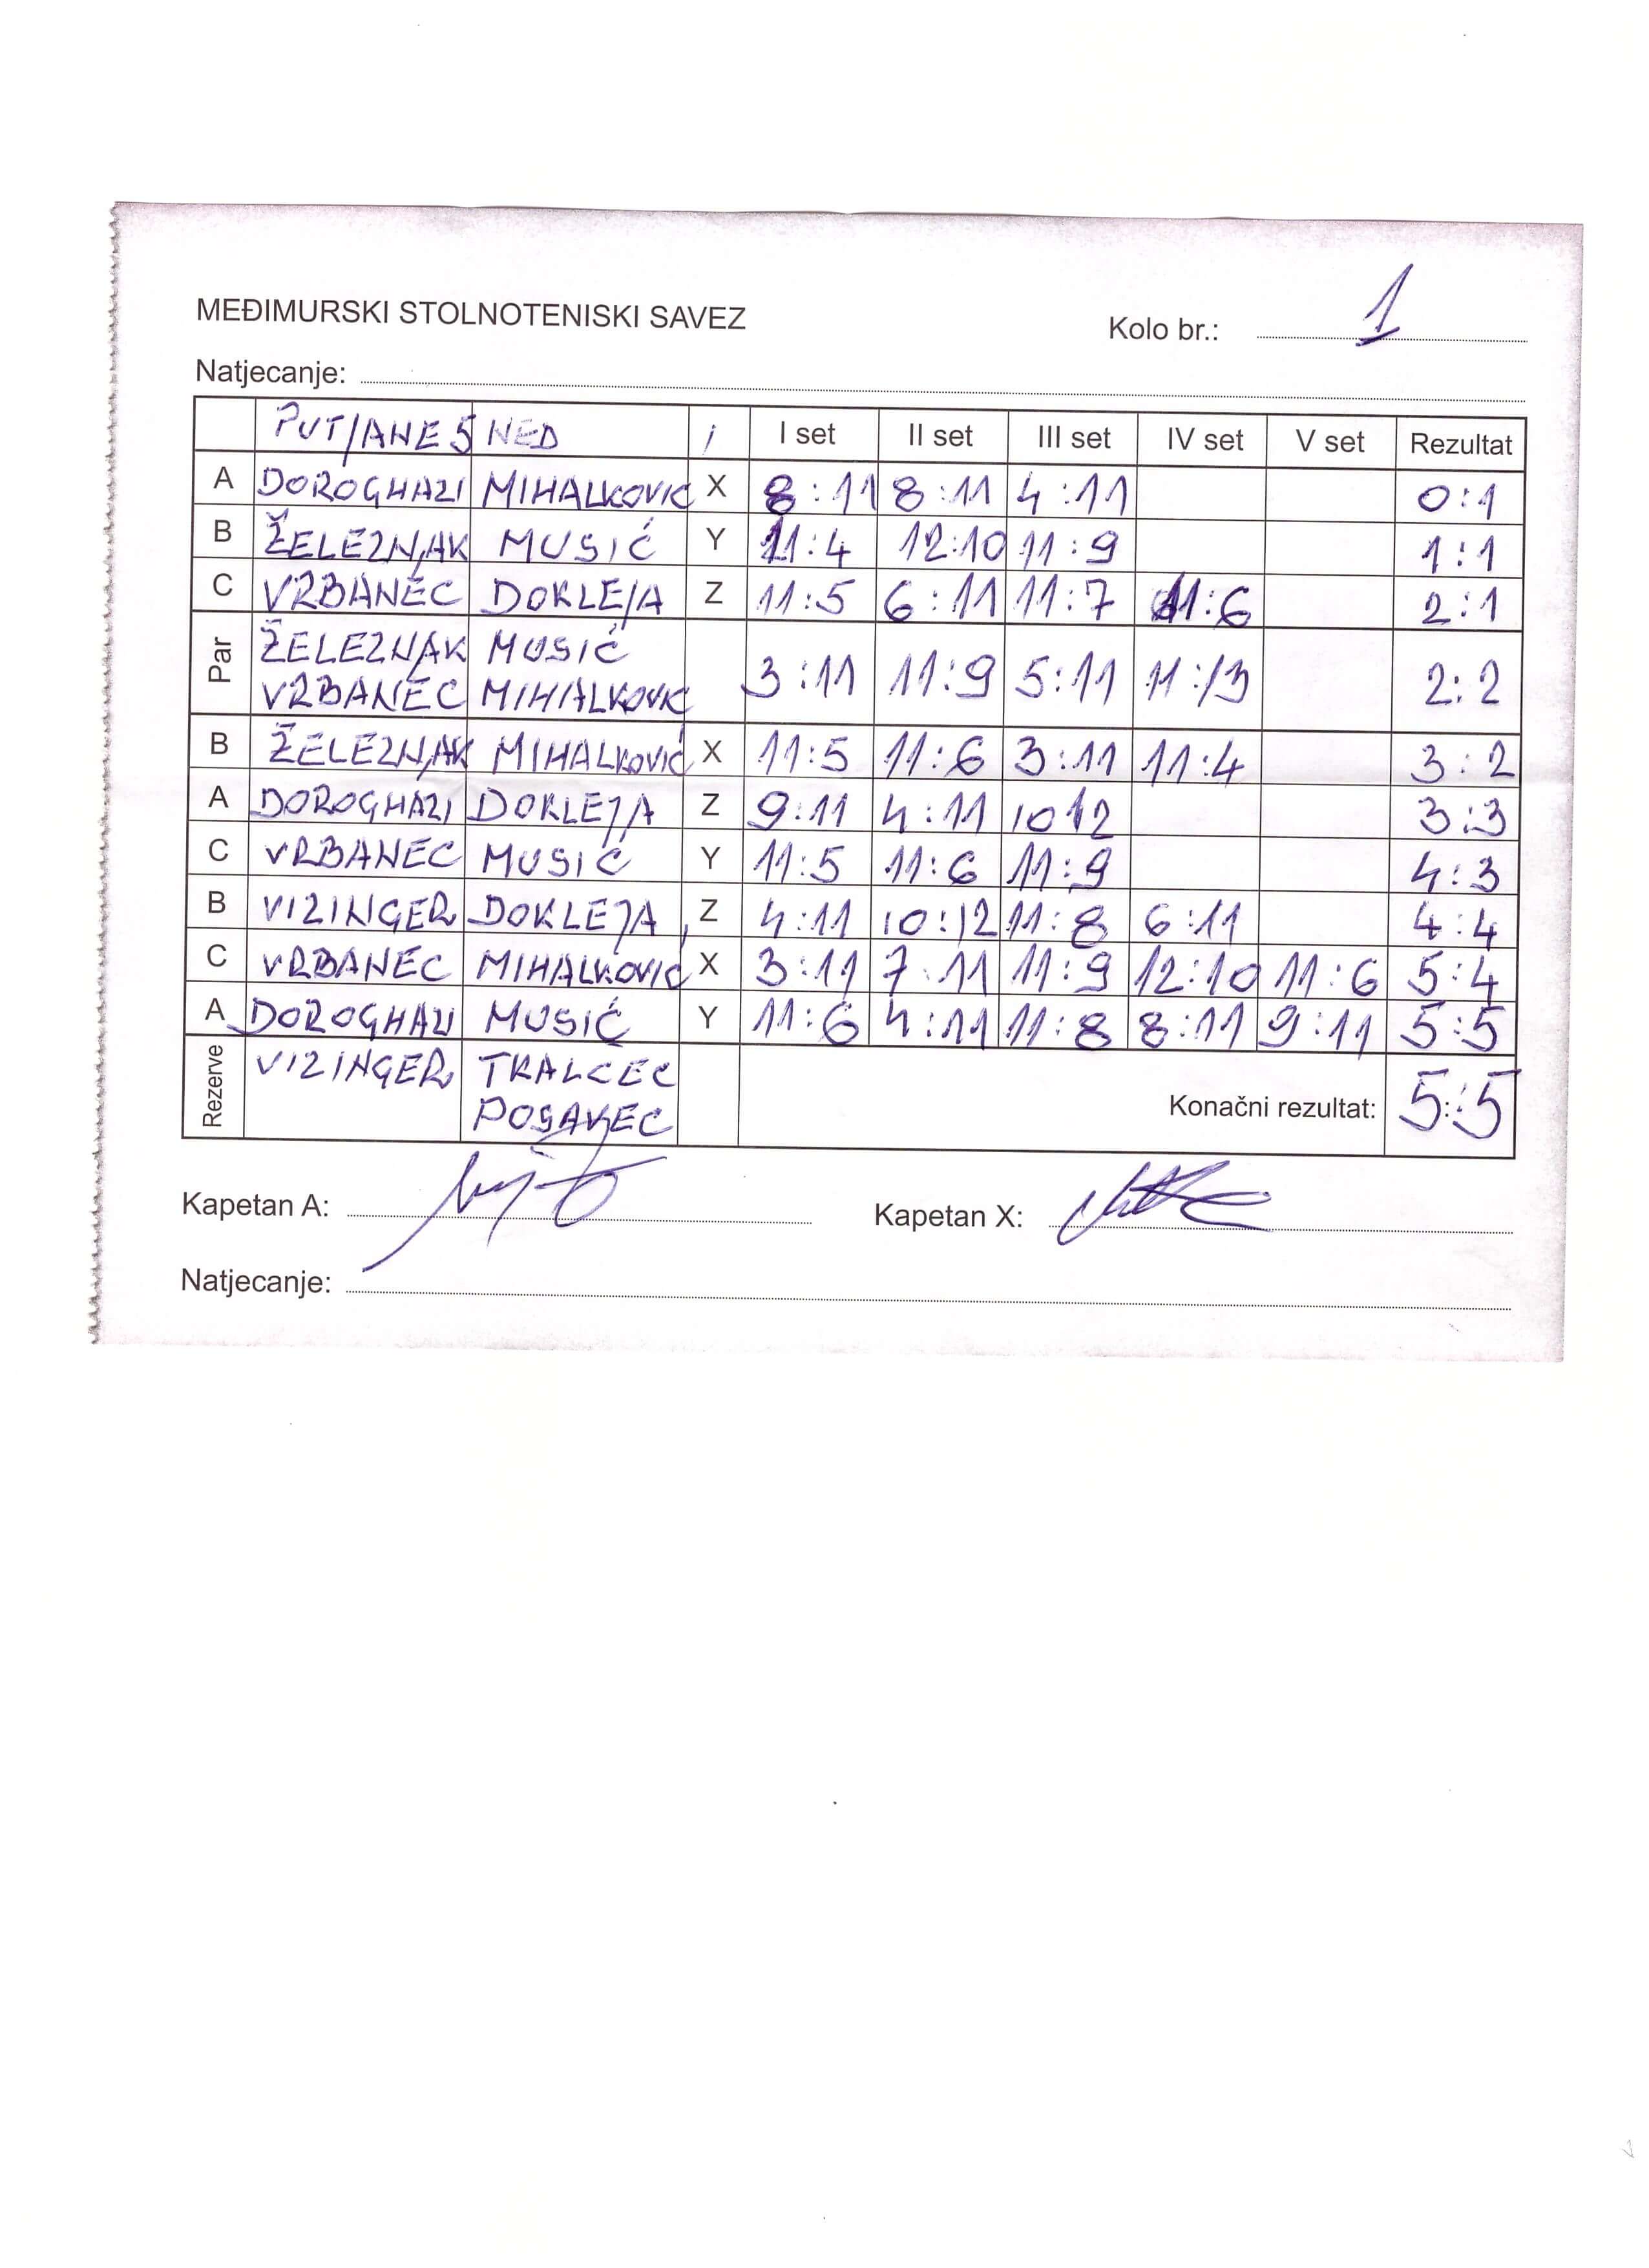 MEĐIMURSKI STOLNOTENISKI SAVEZ
Kolo br.: 1
Natjecanje:
PUTJANE 5 NED I set II set III set IV set V set Rezultat
A DOROGHAZI MIHALKOVIĆ X 8:11 8:11 4:11 0:1
B ŽELEZNJAK MUSIĆ Y 11:4 12:10 11:9 1:1
C VRBANEC DOKLEJA Z 11:5 6:11 11:7 11:6 2:1
Par ŽELEZNJAK MUSIĆ
VRBANEC MIHALKOVIĆ 3:11 11:9 5:11 11:13 2:2
B ŽELEZNJAK MIHALKOVIĆ X 11:5 11:6 3:11 11:4 3:2
A DOROGHAZI DOKLEJA Z 9:11 4:11 10 12 3:3
C VRBANEC MUSIĆ Y 11:5 11:6 11:9 4:3
B VIZINGER DOKLEJA Z 4:11 10:12 11:8 6:11 4:4
C VRBANEC MIHALKOVIĆ X 3:11 7:11 11:9 12:10 11:6 5:4
A DOROGHAZI MUSIĆ Y 11:6 4:11 11:8 8:11 9:11 5:5
Rezerve VIZINGER TRALCEC
POSAVEC
Konačni rezultat: 5:5
Kapetan A: Kapetan X:
Natjecanje: